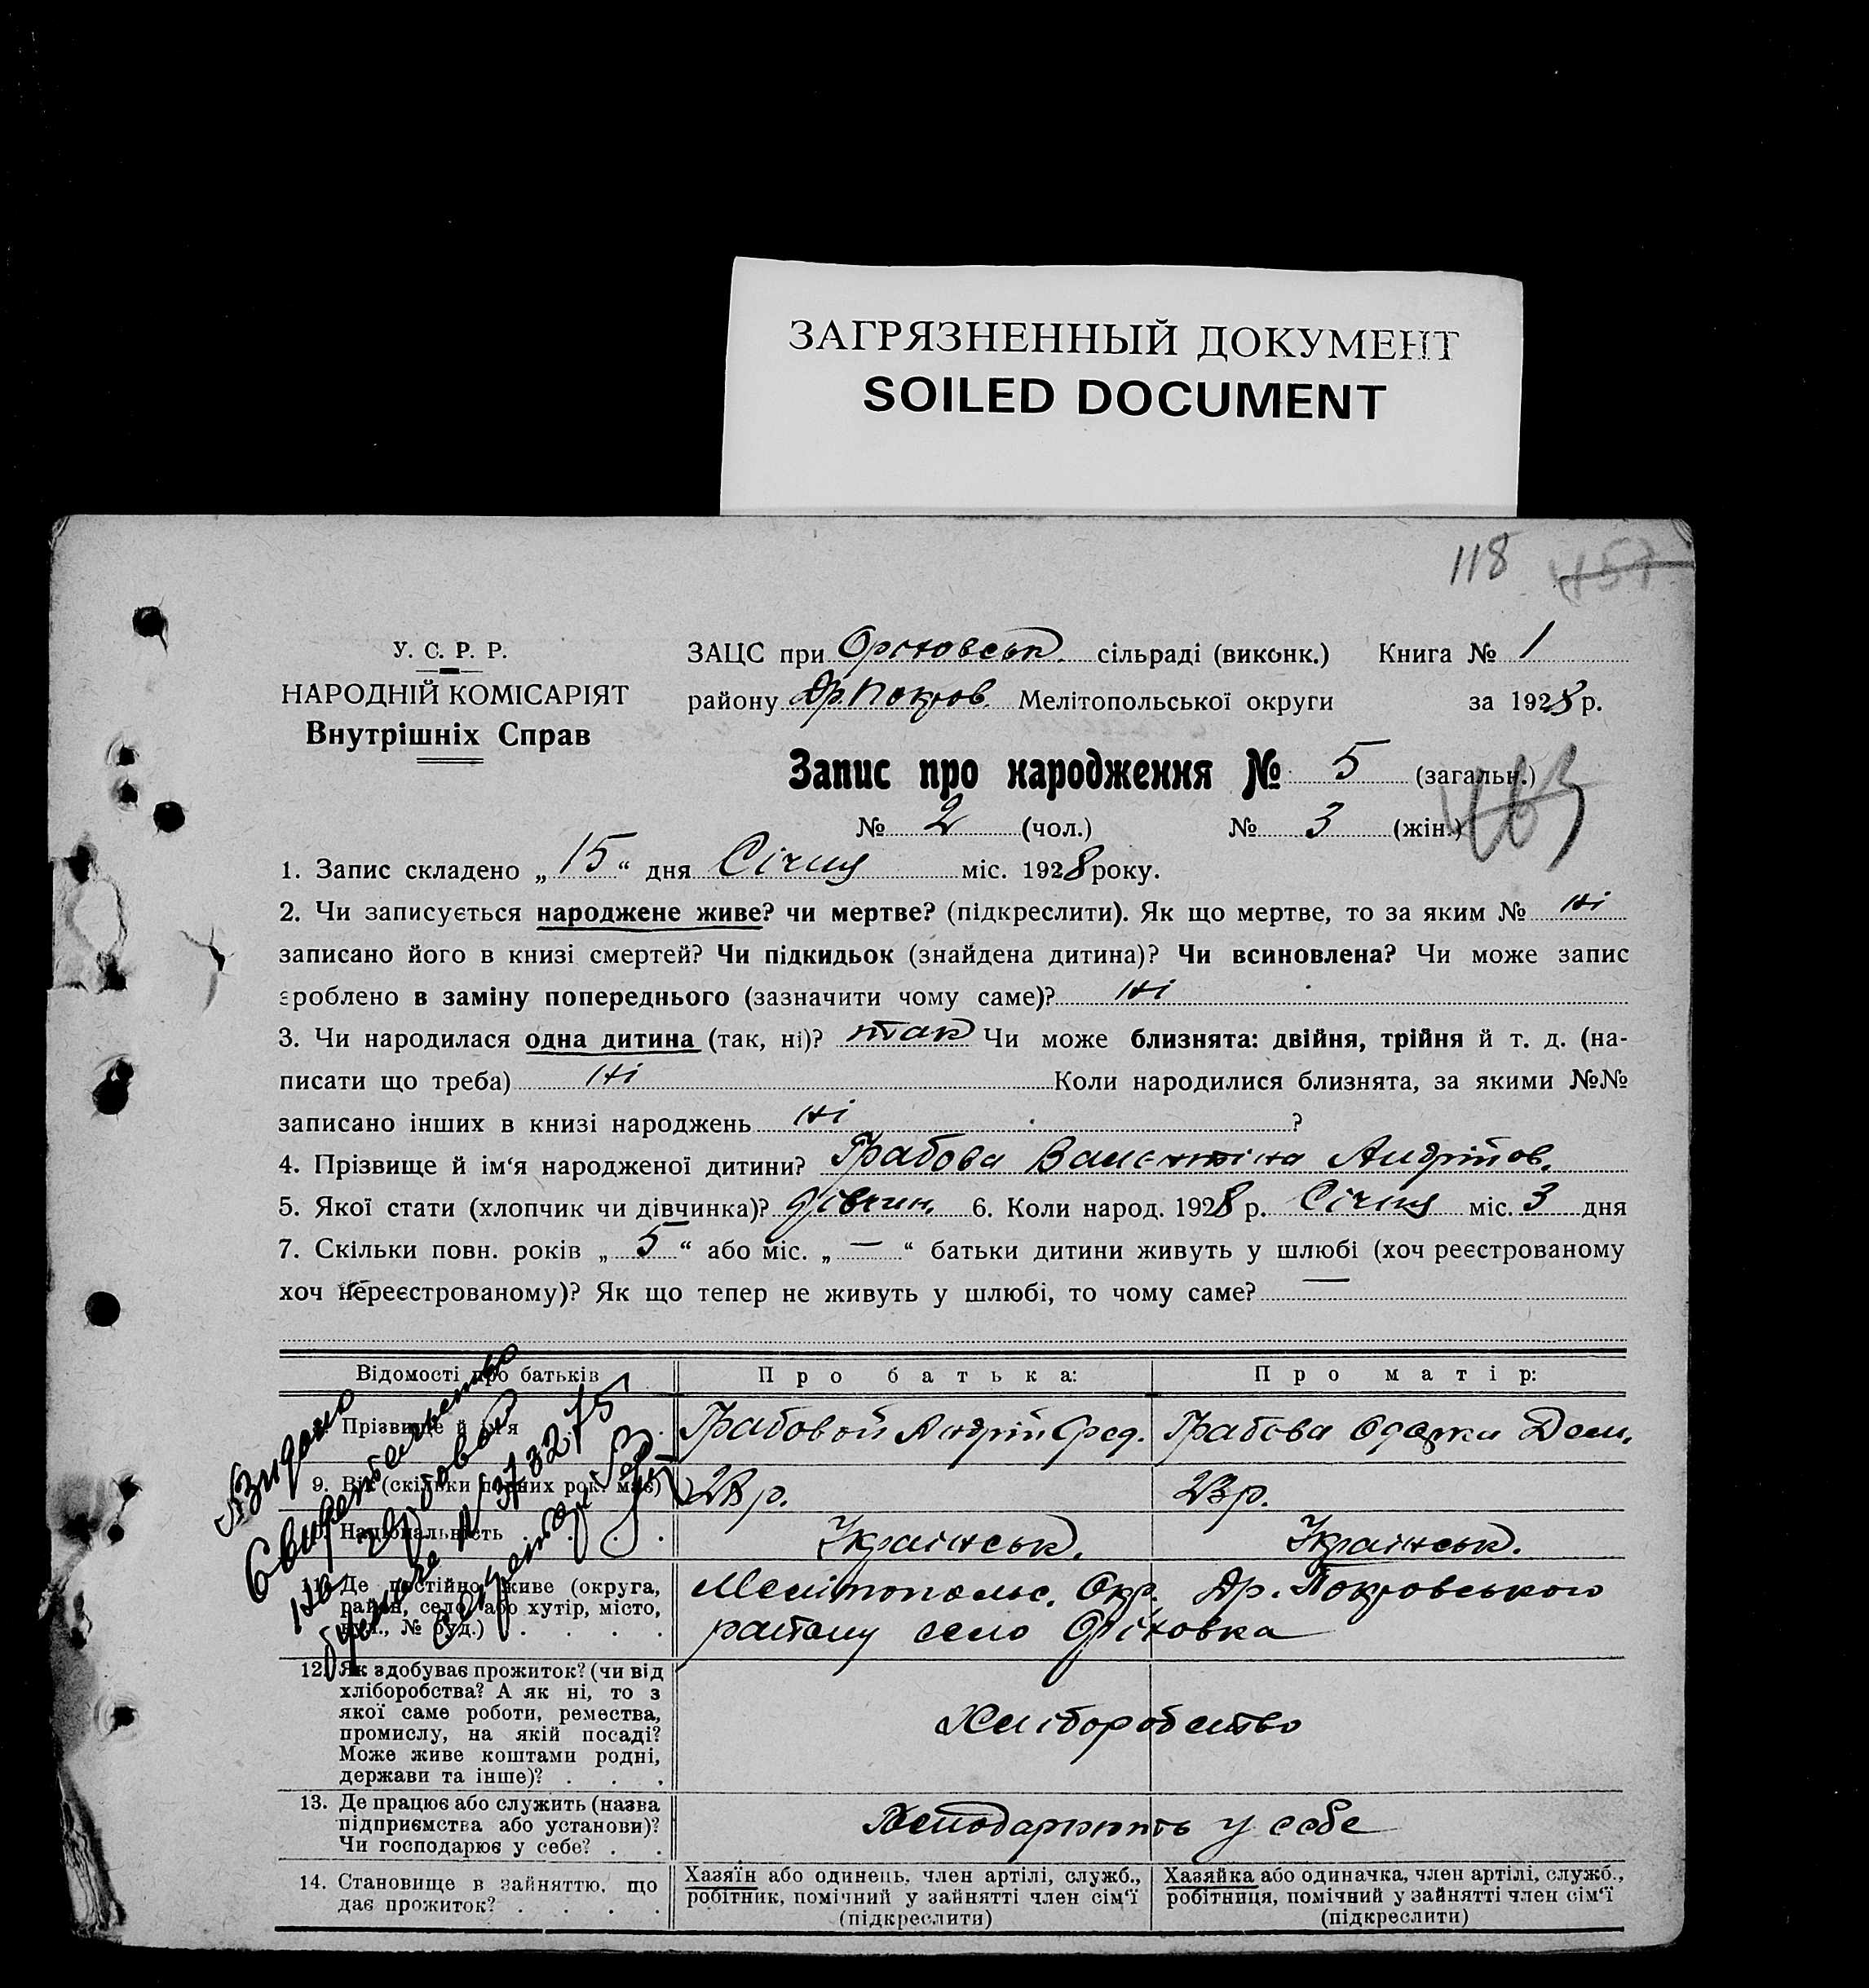 ЗАГРЯЗНЕННЫЙ ДОКУМЕНТ
SOILED DOCUMENT
118
457
У. С. Р. Р.
НАРОДНІЙ КОМІСАРІЯТ
Внутрішніх Справ
ЗАЦС при Оріховськ. сільраді (виконк.) Книга № 1
району Др. Покров. Мелітопольської округи за 1928 р.
Запис про народження № 5 (загальн.)
№ 2 (чол.) № 3 (жін.)
1. Запис складено „ 15 “ дня Січня міс. 1928 року.
2. Чи записується народжене живе? чи мертве? (підкреслити). Як що мертве, то за яким № ні
записано його в книзі смертей? Чи підкидьок (знайдена дитина)? Чи всиновлена? Чи може запис
зроблено в заміну попереднього (зазначити чому саме)? ні
3. Чи народилася одна дитина (так, ні)? так Чи може близнята: двійня, трійня й т. д. (на-
писати що треба) ні Коли народилися близнята, за якими №№
записано інших в книзі народжень ні ?
4. Прізвище й ім‘я народженої дитини? Грабова Валентіна Андрійов.
5. Якої стати (хлопчик чи дівчинка)? дівчин. 6. Коли народ. 1928 р. Січня міс. 3 дня
7. Скільки повн. років „ 5 “ або міс. „ — “ батьки дитини живуть у шлюбі (хоч реєстрованому
хоч нереєстрованому)? Як що тепер не живуть у шлюбі, то чому саме? —
Відомості про батьків Про батька: Про матір:
Прізвище й ім‘я Грабовой Андрій Фед. Грабова Одарка Дем.
9. Вік (скільки повних рок. має) 28 р. 23 р.
Національність Українськ. Українськ.
11. Де постійно живе (округа, район, село, або хутір, місто, вул., № буд.) Мелітопольс. Окр. Др. Покровського
району село Оріховка
12. Як здобуває прожиток? (чи від
хліборобства? А як ні, то з
якої саме роботи, ремества,
промислу, на якій посаді?
Може живе коштами родні,
держави та інше)?
Хліборобство
13. Де працює або служить (назва
підприємства або установи)?
Чи господарює у себе?
у себе
14. Становище в зайняттю, що
дає прожиток?
Хазяїн або одинець, член артілі, служб.,
робітник, помічний у зайнятті член сім‘ї
(підкреслити)
Хазяйка або одиначка, член артілі, служб.,
робітниця, помічний у зайнятті член сім‘ї
(підкреслити)
Видано